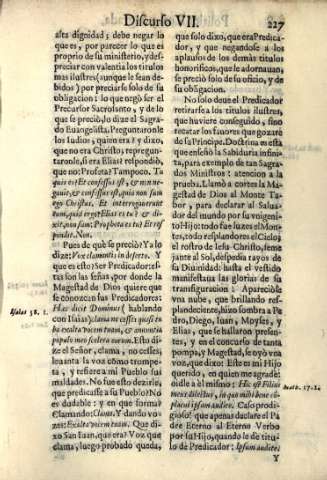 Discurso VII.
227
esta dignidad; debe negar lo
que es, por parecer lo que es
proprio de su ministerio, y des-
preciar con valentia los titulos
mas ilustres (aunque le sean de-
bidos) por preciarse solo de su
obligacion: lo que negò ser el
Precursor Sacrosanto, y de lo
que se preciò, lo dize el Sagra-
do Euangelista. Preguntaronle
los Iudios, quien era? y dixo,
que no era Christo; repregun-
taronle, si era Elias? respondiò,
que no: Profeta? Tampoco. Tu
quis es? Et confessus est, & non ne-
gauit, & confessus est, quia non sum
ego Christus. Et interrogauerunt
eum, quid ergo? Elias es tu? & di-
xit, non sum: Propheta es tu? Et res-
pondit. Non.
Pues de què se preciò? Ya lo
dize: Vox clamantis in deserto. Y
que es esto? Ser Predicador: es-
tas son las señas, por donde la
Magestad de Dios quiere que
se conozcan sus Predicadores:
Hæc dicit Dominus (hablando
con Isaias) clama ne cesses quasi tu-
ba exalta vocem tuam, & annuntia
populo meo scelera eorum. Esto di-
ze el Señor, clama, no cesses,
leuanta la voz como trompe-
ta, y refiere a mi Pueblo sus
maldades. No fue esto dezirle,
que predicasse a su Pueblo? No
es dudable: y en que forma?
Clamando: Clama. Y dando vo-
zes: Exalta vocem tuam. Que di-
xo San Iuan, que era? Voz que
clama, luego probado queda,
Isaias 58. 1.
que solo dixo, que era Predica-
dor, y que negandose a los
aplausos de los demàs titulos
honorificos, que le adornauan;
se preciò solo de su oficio, y de
su obligacion.
No solo deue el Predicador
retirarse a los titulos ilustres,
que huviere conseguido, sino
recatar los fauores que gozarè
de su Principe. Doctrina es esta
que enseñò la Sabiduria infini-
ta, para exemplo de tan Sagra-
dos Ministros: atencion a la
prueba. Llamò a cortes la Ma-
gestad de Dios al Monte Ta-
bor, para declarar al Salua-
dor del mundo por su vnigeni-
to Hijo: todo fue luzes el Mon-
tes, todo resplandores el Cielo;
el rostro de Iesu-Christo, seme-
jante al Sol, despedia rayos de
su Diuinidad: hasta el vestido
manifestaua las glorias de su
transfiguracion: Apareciòse
vna nube, que brillando res-
plandeciente, hizo sombra a Pe-
dro, Diego, Iuan, Moyses, y
Elias, que se hallaron presen-
tes, y en el concurso de tanta
pompa, y Magestad, se oyò vna
voz, que dixo: Este es mi Hijo
querido, en quien me agradè:
oidle a èl mismo: Hic est Filius
meus dilectus, in quo mihi bene co-
placui ipsum audite. Caso prodi-
gioso! que apenas declare el Pa-
dre Eterno al Eterno Verbo
por su Hijo, quando le dè titu-
lo de Predicador: Ipsum audite:
Y